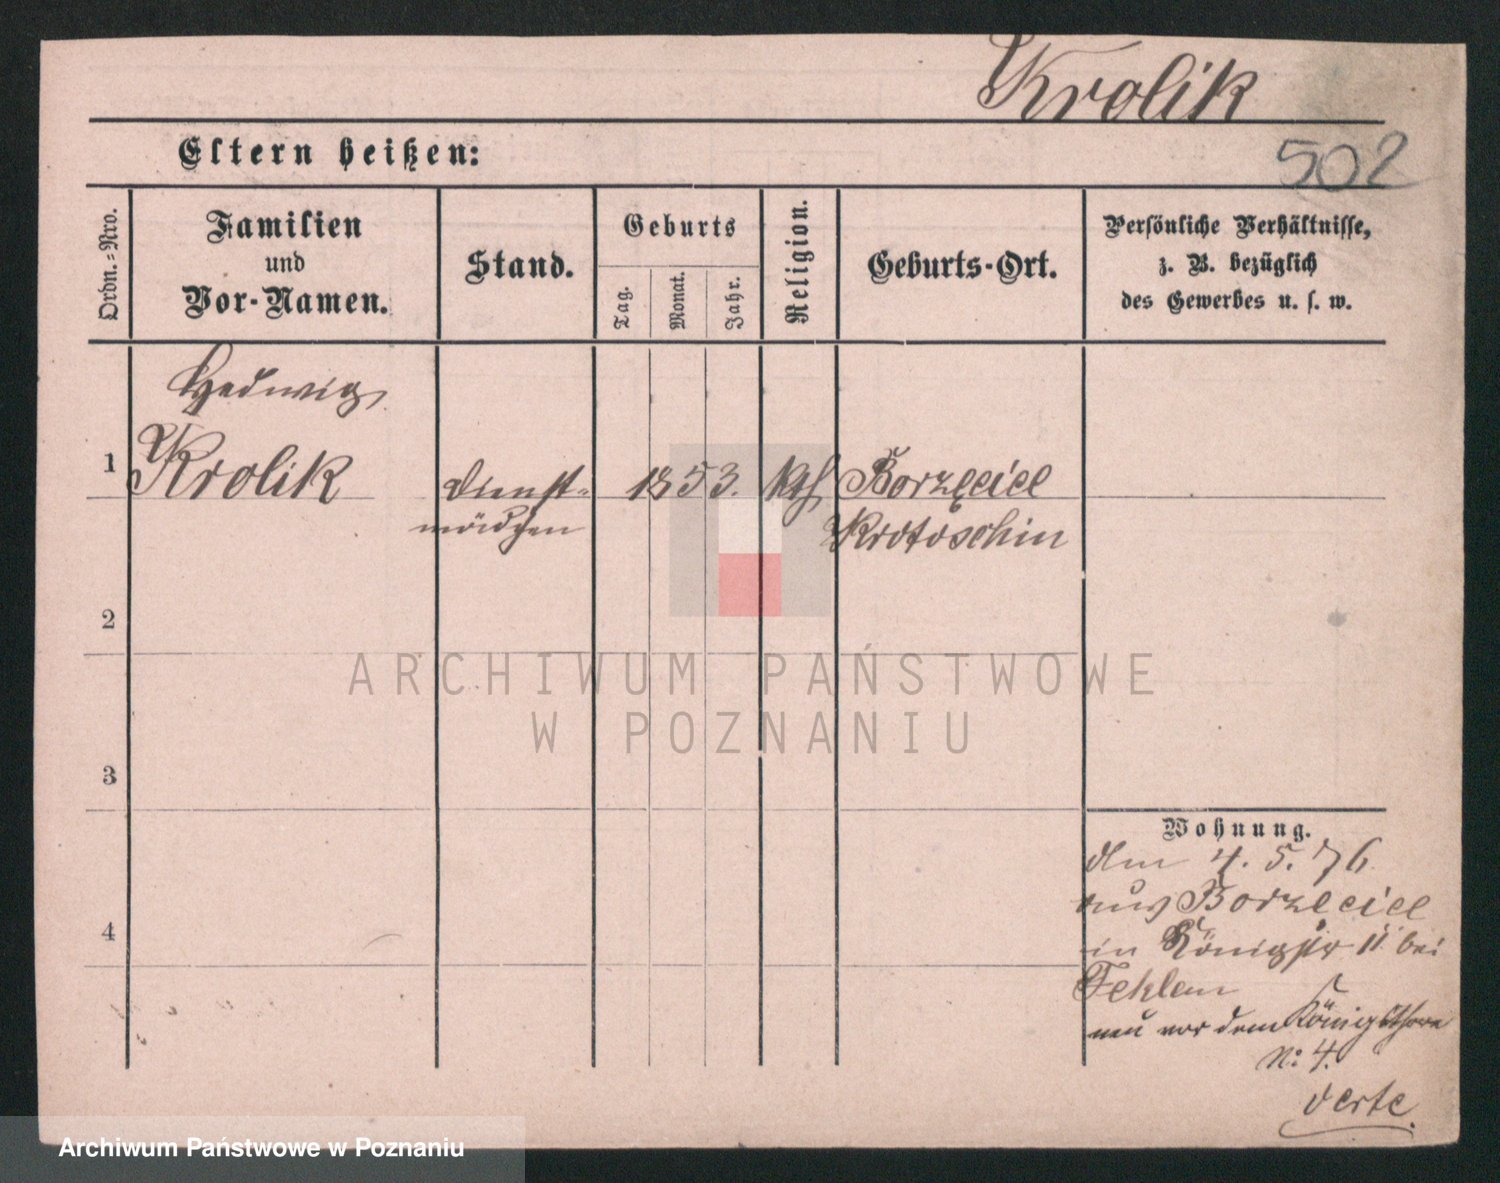 Krolik
502
Eltern heißen:
Ordn.-Nro.
Familien
und
Vor-Namen.
Stand.
Geburts
Tag.
Monat.
Jahr.
Religion.
Geburts-Ort.
Persönliche Verhältnisse,
z. B. bezüglich
des Gewerbes u. s. w.
Hedwig
1 Krolik Dienst- 1853. kth Borzęciec
mädchen Krotoschin
2
3
4
Wohnung.
den 4. 5. 76
aus Borzeciec
in Königstr 11 bei
neu vor dem Königsthore
No 4.
ARCHIWUM PAŃSTWOWE
W POZNANIU
Archiwum Państwowe w Poznaniu